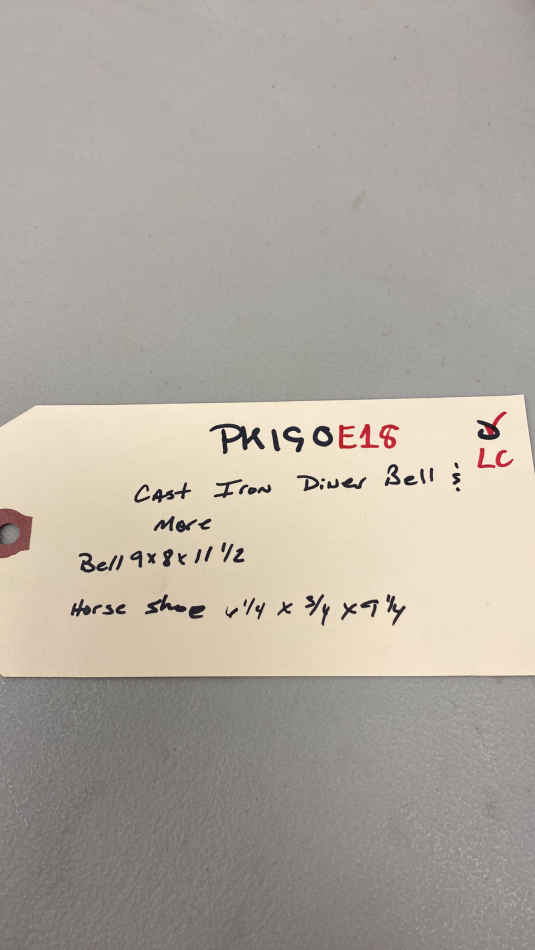 PK190E18
LC
Cast Iron Diner Bell &
More
Bell 9x8x11 1/2
Horse Shoe 6 1/4 x 3/4 x 9 1/4